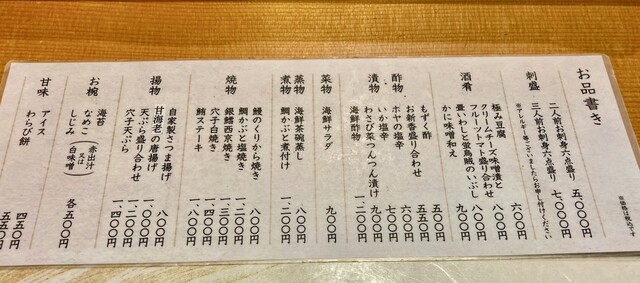 お品書き
※価格は税込です
刺盛
二人前お刺身六点盛り 五、〇〇〇円
三人前お刺身六点盛り 七、〇〇〇円
※アレルギー等ございましたらお申し付けください
酒肴
極み豆腐 六〇〇円
クリームチーズ味噌漬と
フルーツトマト盛り合わせ 八〇〇円
畳いわしと蛍烏賊のいぶし
かに味噌和え
酢物、
漬物
もずく酢 五五〇円
お新香盛り合わせ 五五〇円
ホヤの塩辛 六〇〇円
いか塩辛 七〇〇円
わさび菜つんつん漬け 九〇〇円
海鮮酢物 一、二〇〇円
菜物
海鮮サラダ 九〇〇円
蒸物、
煮物
海鮮茶碗蒸し 八〇〇円
鯛かぶと煮付け 一、二〇〇円
焼物
鰻のくりから焼き 八〇〇円
鯛かぶと塩焼き 一、二〇〇円
銀鱈西京焼き 一、三〇〇円
穴子白焼き 一、四〇〇円
鮪ステーキ 一、八〇〇円
揚物
自家製さつま揚げ 八〇〇円
甘海老の唐揚げ 一、〇〇〇円
天ぷら盛り合わせ 一、二〇〇円
穴子天ぷら 一、四〇〇円
お椀
海苔
なめこ
しじみ
（赤出汁又は白味噌） 各五〇〇円
甘味
アイス 四五〇円
わらび餅 五五〇円